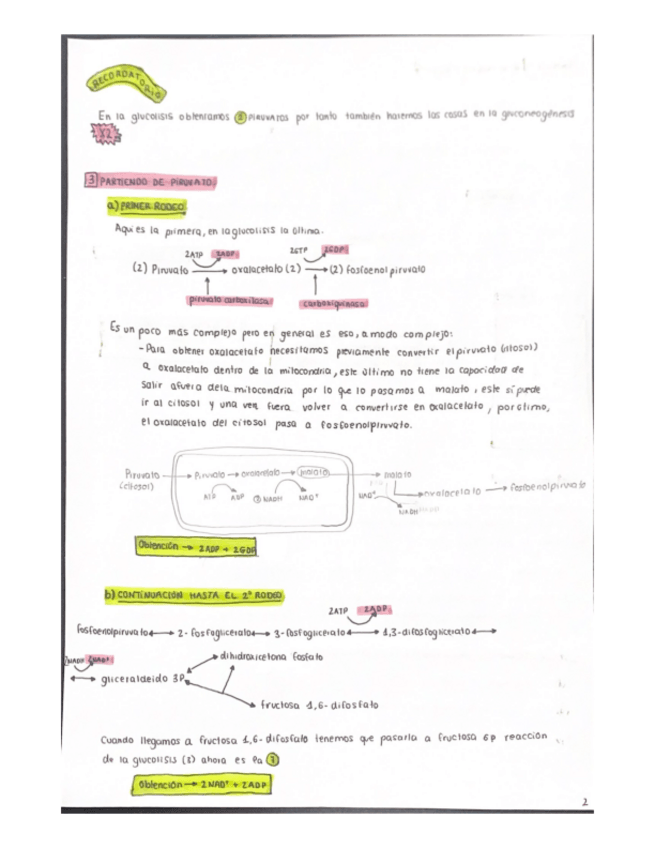 RECORDATORIO
En la glucolisis obteníamos 2 piruvatos por tanto también haremos las cosas en la gluconeogénesis
X2
3 PARTIENDO DE PIRUVATO:
a) PRIMER RODEO
Aquí es la primera, en la glucolisis la última.
2ATP 2ADP 2GTP 2GDP
(2) Piruvato → oxalacetato (2) → (2) fosfoenolpiruvato
piruvato carboxilasa carboxiquinasa
Es un poco más complejo pero en general es eso, a modo complejo:
- Para obtener oxalacetato necesitamos previamente convertir el piruvato (citosol)
a oxalacetato dentro de la mitocondria, este último no tiene la capacidad de
salir afuera de la mitocondria por lo que lo pasamos a malato, este sí puede
ir al citosol y una vez fuera volver a convertirse en oxalacetato, por último,
el oxalacetato del citosol pasa a fosfoenolpiruvato.
Piruvato → Piruvato → oxalacetato → malato → malato
(citosol) → oxalacetato → fosfoenolpiruvato
ATP ADP NADH NAD⁺ NAD⁺ NADH
Obtención → 2ADP + 2GDP
b) CONTINUACIÓN HASTA EL 2º RODEO
2ATP 2ADP
fosfoenolpiruvato ↔ 2-fosfoglicerato ↔ 3-fosfoglicerato ↔ 1,3-difosfoglicerato ↔
2NADH 2NAD⁺
dihidroxicetona fosfato
↔ gliceraldeido 3P
fructosa 1,6-difosfato
Cuando llegamos a fructosa 1,6-difosfato tenemos que pasarla a fructosa 6P reacción
de la glucolisis (3) ahora es la 7
Obtención → 2NAD⁺ + 2ADP
2